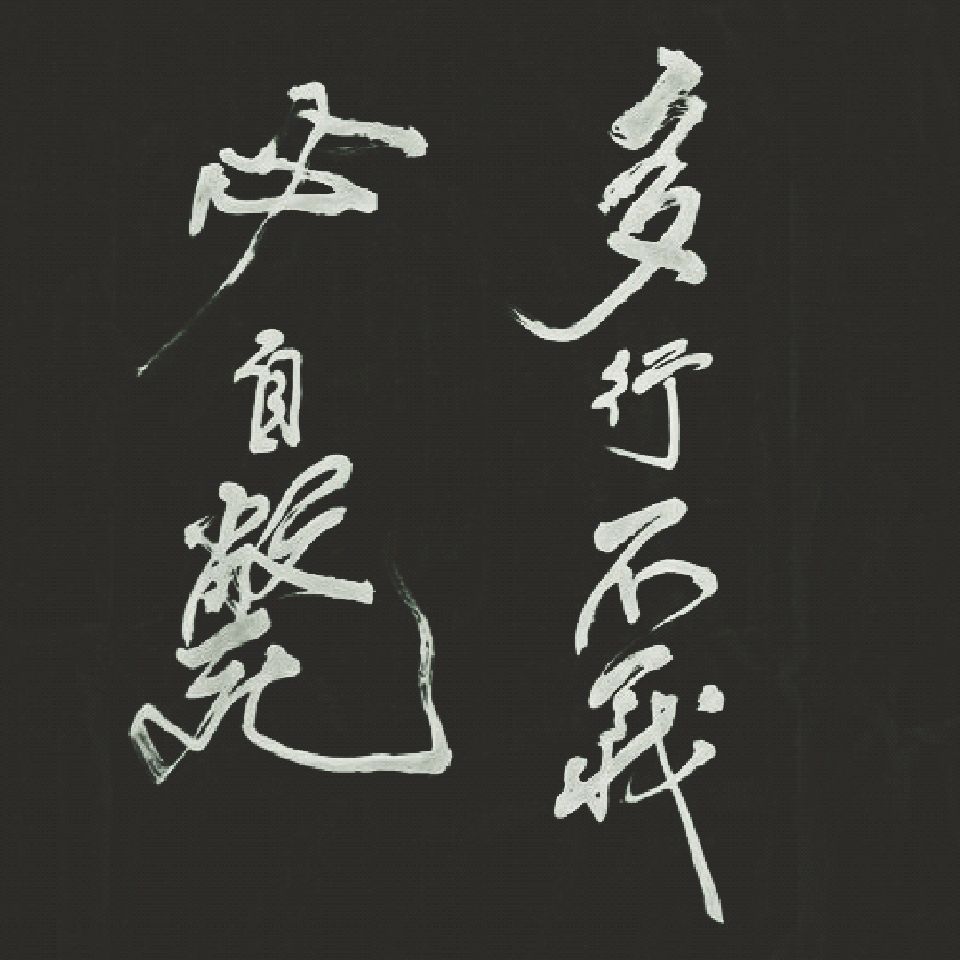 多行不義
必自斃